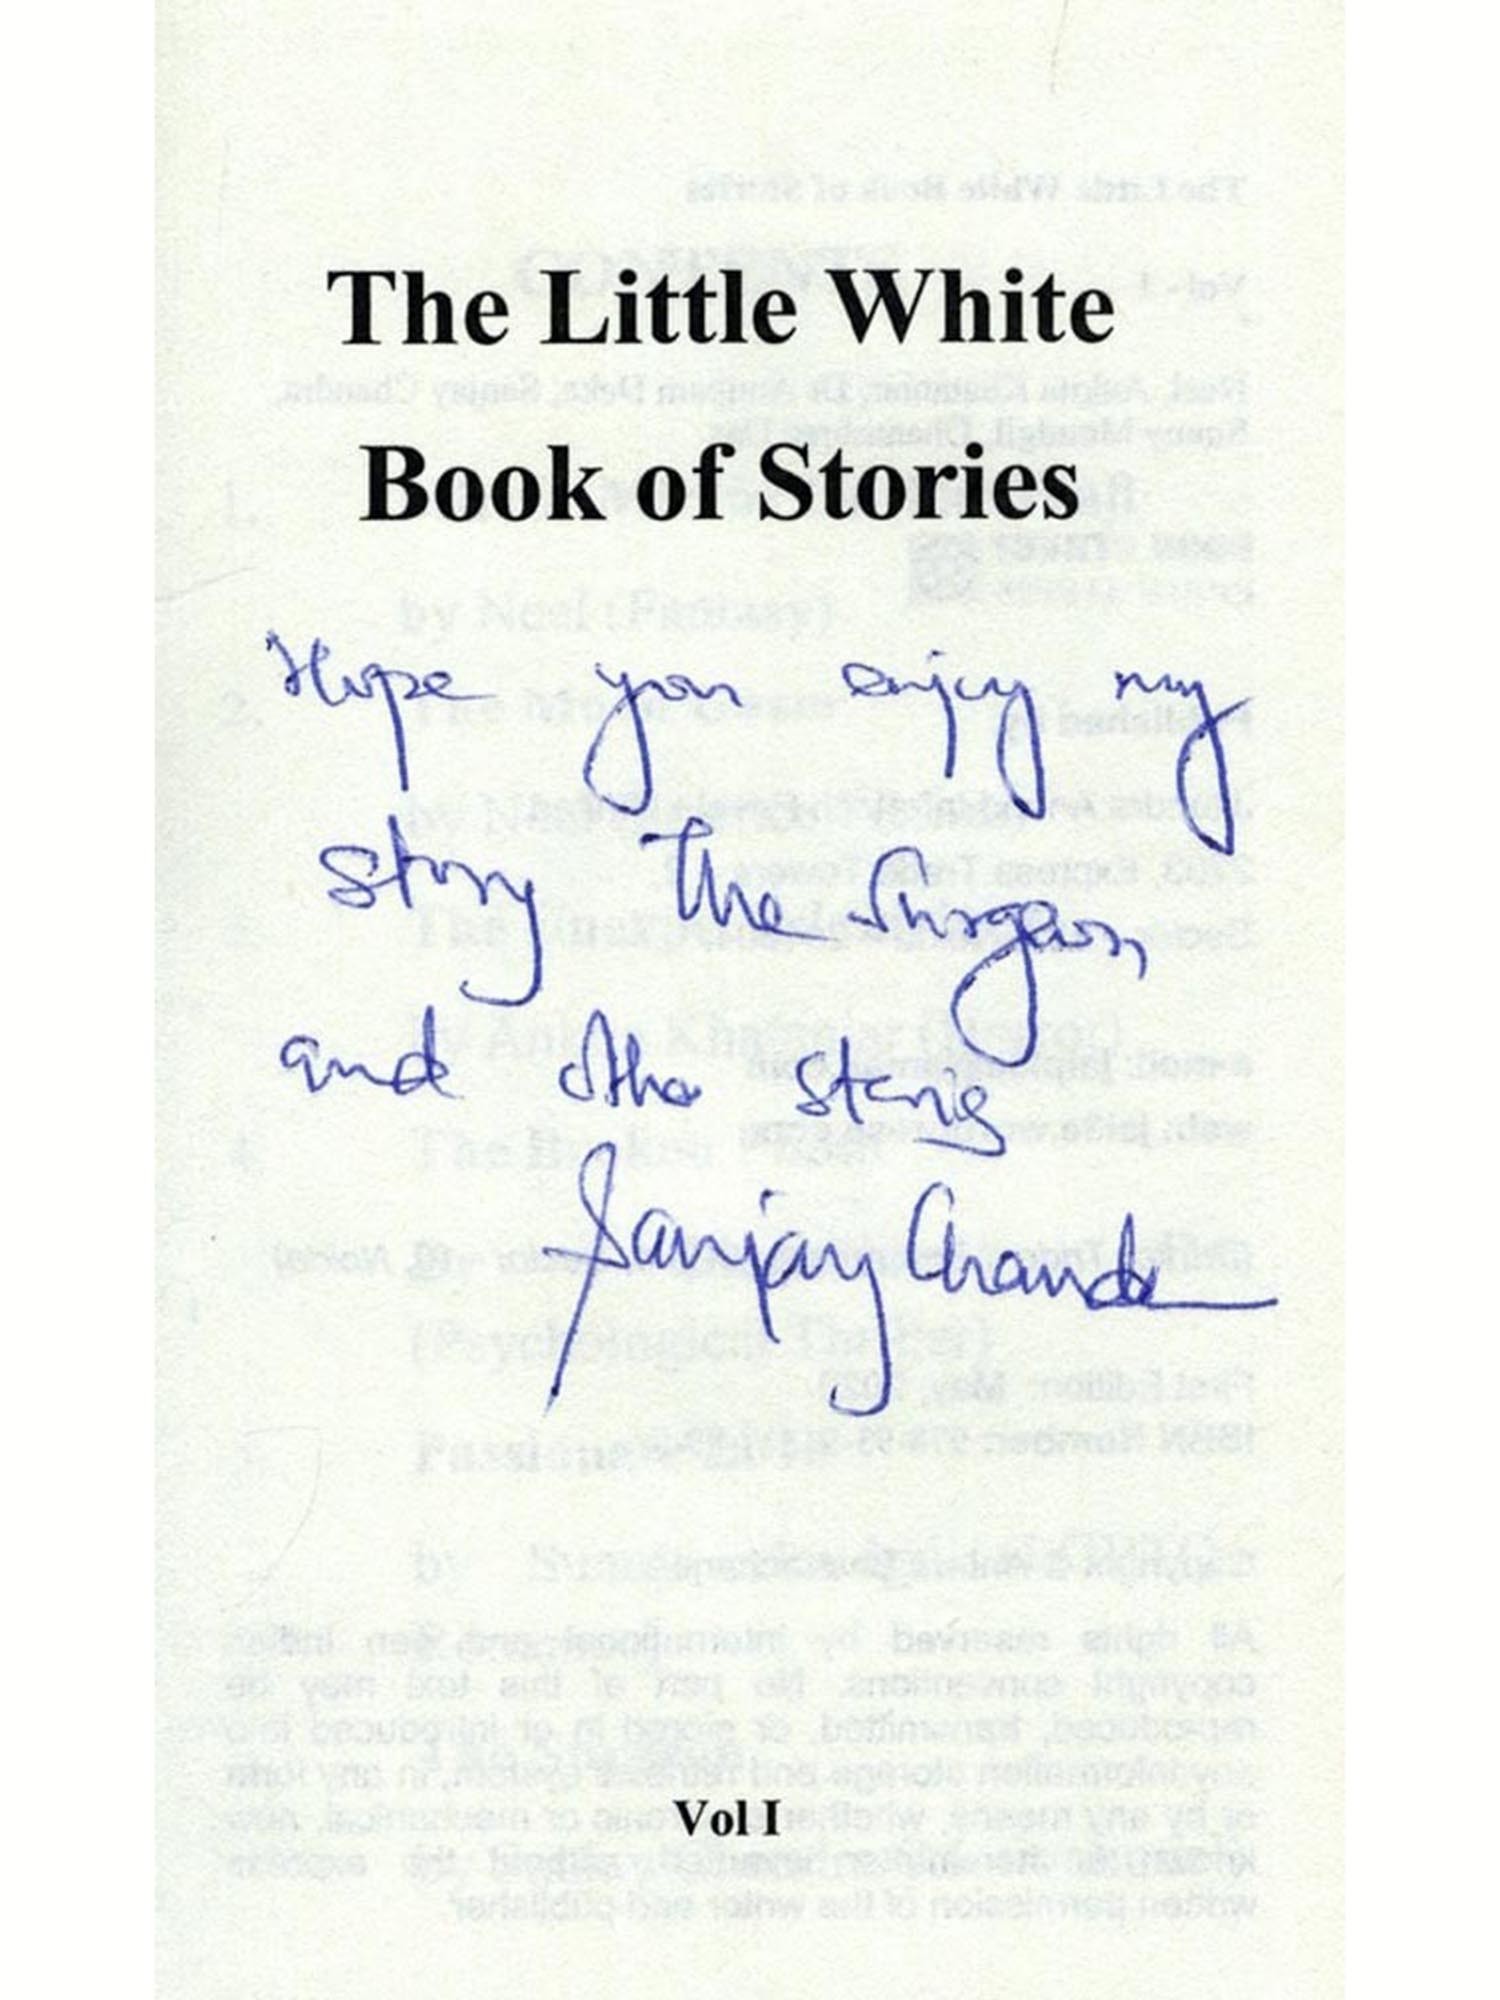 The Little White
Book of Stories
Hope you enjoy my
story The Surgeon
and other stories
Sanjay Chandra
Vol I